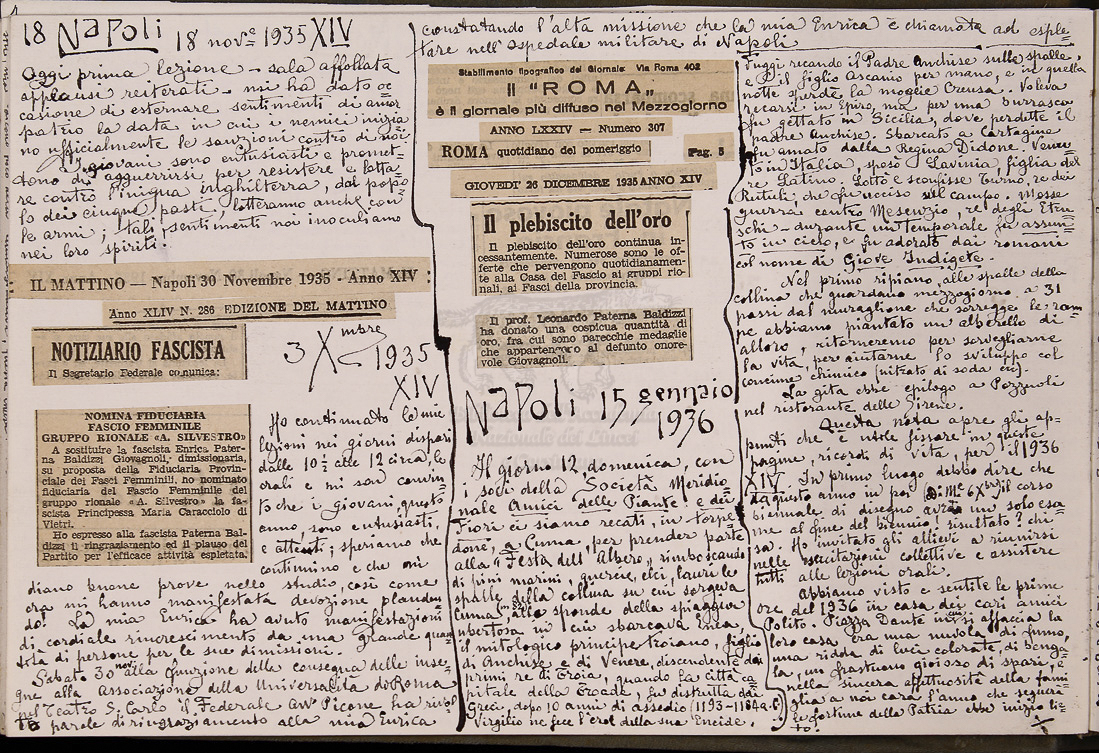 18 Napoli 18 nov.e 1935 XIV
Oggi prima lezione - sala affollata
applausi reiterati - mi ha dato oc
casione di esternare sentimenti di amor
patrio la data in cui i nemici inizia
no ufficialmente le sanzioni contro di noi
I giovani sono entusiasti e promet-
tono di agguerrirsi per resistere e lotta-
re contro l'iniqua inghilterra, dal popo
lo dei cinque pasti, lotteranno anche con
le armi; tali sentimenti noi inoculiamo
nei loro spiriti.
IL MATTINO — Napoli 30 Novembre 1935 - Anno XIV
Anno XLIV N. 286 EDIZIONE DEL MATTINO
NOTIZIARIO FASCISTA
Il Segretario Federale comunica:
3 Xmbre 1935
XIV
NOMINA FIDUCIARIA
FASCIO FEMMINILE
GRUPPO RIONALE «A. SILVESTRO»
A sostituire la fascista Enrica Pater-
na Baldizzi Giovagnoli, dimissionaria,
su proposta della Fiduciaria Provin-
ciale dei Fasci Femminili, ho nominato
fiduciaria del Fascio Femminile del
gruppo rionale «A. Silvestro» la fa-
scista Principessa Maria Caracciolo di
Vietri.
Ho espresso alla fascista Paterna Bal-
dizzi il ringraziamento ed il plauso del
Partito per l'efficace attività espletata.
Ho continuato le mie
lezioni nei giorni dispari
dalle 10½ alle 12 circa, le
orali e mi son convin
to che i giovani questo
anno sono entusiasti,
e attenti; speriamo che
continuino e che mi
diano buone prove nello studio, così come
ora mi hanno manifestata devozione plauden
do! La mia Enrica ha avuto manifestazioni
di cordiale rincrescimento da una grande quan
tità di persone per le sue dimissioni.
Sabato 30 nov. alla funzione della consegna delle inse-
gne alla Associazione della Università di Roma
nel Teatro S. Carlo il Federale Avv Picone ha rivol
to parole di ringraziamento alla mia Enrica
constatando l'alta missione che la mia Enrica è chiamata ad esple-
tare nell'Ospedale militare di Napoli
Stabilimento tipografico del Giornale: Via Roma 402
Il "ROMA"
è il giornale più diffuso nel Mezzogiorno
ANNO LXXIV — Numero 307
ROMA quotidiano del pomeriggio
Pag. 5
GIOVEDI' 26 DICEMBRE 1935 ANNO XIV
Il plebiscito dell'oro
Il plebiscito dell'oro continua in-
cessantemente. Numerose sono le of-
ferte che pervengono quotidianamen-
te alla Casa del Fascio ai gruppi rio-
nali, ai Fasci della provincia.
Il prof. Leonardo Paterna Baldizzi
ha donato una cospicua quantità di
oro, fra cui sono parecchie medaglie
che appartengono al defunto onore-
vole Giovagnoli.
Napoli 15 gennaio
1936
Il giorno 12, domenica, con
i soci della Società Meridio
nale Amici delle Piante e dei
Fiori ci siamo recati, in torpe
done, a Cuma, per prender parte
alla "Festa dell'Albero" rimboscando
di pini marini, querce, elci, lauri le
spalle della collina su cui sorgeva
Cuma, alle sponde della spiaggia
ubertosa in cui sbarcava Enea,
il mitologico principe troiano, figlio
di Anchise e di Venere, discendente dai
primi re di Troia, quando la città ca
pitale della Troade, fu distrutta dai
Greci, dopo 10 anni di assedio (1193-1184 a.C.)
Virgilio ne fece l'eroe della sua Eneide.
Fuggì recando il Padre Anchise sulle spalle,
e il figlio Ascanio per mano, e in quella
notte sperde la moglie Creusa. Voleva
recarsi in Epiro, ma per una burrasca
fu gettato in Sicilia, dove perdette il
padre Anchise. Sbarcato a Cartagine
fu amato dalla Regina Didone. Venu
to in Italia, sposò Lavinia, figlia del
re Latino. Lottò e sconfisse Turno, re dei
Rutuli che fu ucciso sul campo. Mosse
guerra contro Mesenzio, re degli Etru
schi - durante un temporale fu assun
to in cielo, e fu adorato dai romani
col nome di Giove Indigete.
Nel primo ripiano, alle spalle della
collina che guardano mezzogiorno, a 31
passi dal muraglione che sorregge le ram
pe abbiamo piantato un alberello di
alloro, ritorneremo per sorvegliarne
la vita, per aiutarne lo sviluppo col
concime chimico (nitrato di soda ecc).
La gita ebbe epilogo a Pozzuoli
nel ristorante delle Sirene.
Questa nota apre gli ap-
punti che è utile fissare in queste
pagine, ricordi di vita, per il 1936
XIV In primo luogo debbo dire che
da questo anno in poi il corso
biennale di disegno avrà un solo esa
me al fine del biennio! risultato? chi
sa. Ho invitato gli allievi a riunirsi
nelle esercitazioni collettive e assistere
tutti alle lezioni orali.
Abbiamo visto e sentite le prime
ore del 1936 in casa dei cari amici
Polito. Piazza Dante in cui si affaccia la
loro casa era una nuvola di fumo,
una ridda di luci colorate, di benga
la, un frastuono gioioso di spari, e
nella sincera affettuosità della fami
glia a noi cara l'anno che seguirà
le fortune della Patria ebbe inizio lie-
to.